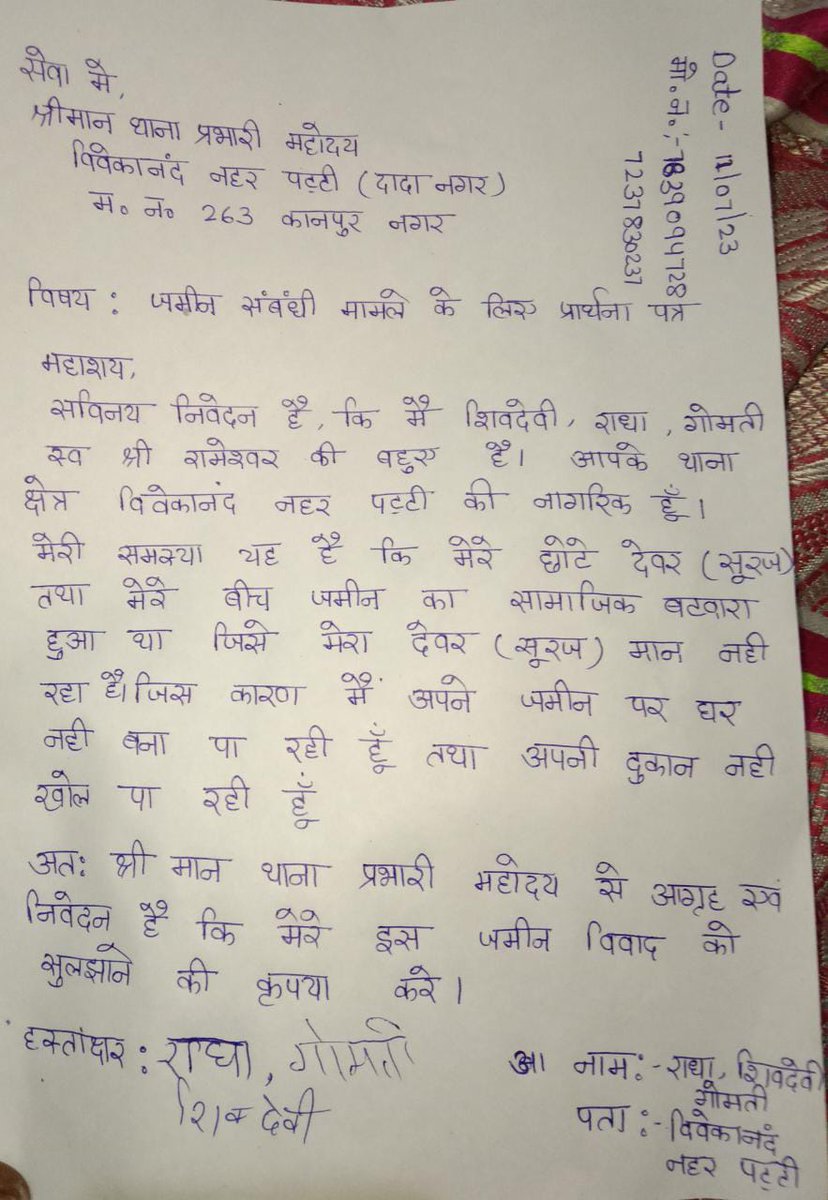 सेवा मे,
श्रीमान थाना प्रभारी महोदय
विवेकानंद नहर पट्टी (दादा नगर)
म॰ न॰ 263 कानपुर नगर
Date- 12/07/23
मौ.न.:-
7237830237
विषय : जमीन संबंधी मामले के लिए प्रार्थना पत्र
महाशय,
सविनय निवेदन है, कि मै शिवदेवी, राधा, गोमती
स्व श्री रामेश्वर की बहुए है। आपके थाना
क्षेत्र विवेकानंद नहर पट्टी की नागरिक हूँ।
मेरी समस्या यह है कि मेरे छोटे देवर (सूरज)
तथा मेरे बीच जमीन का सामाजिक बटवारा
हुआ था जिसे मेरा देवर (सूरज) मान नही
रहा है। जिस कारण मैं अपने जमीन पर घर
नही बना पा रही हूँ तथा अपनी दुकान नही
खोल पा रही हूँ
अतः श्री मान थाना प्रभारी महोदय से आग्रह एवं
निवेदन है कि मेरे इस जमीन विवाद को
सुलझाने की कृपया करे।
हस्तांक्षर : राधा, गोमती
शिव देवी
नाम:- राधा, शिवदेवी
गोमती
पता:- विवेकानंद
नहर पट्टी